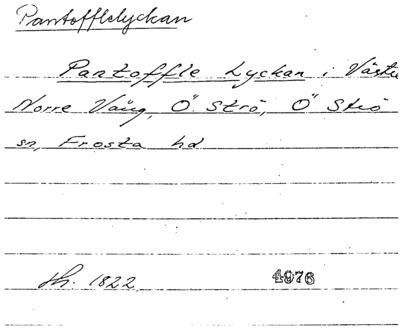 Pantofflelyckan
Pantoffle Lyckan i Västre
Norre Vång, Ö Strö, Ö Strö
sn, Frosta hd
1822 4976